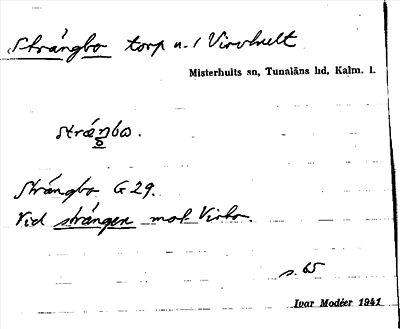 Strångbo torp u. / Virvhult
Misterhults sn, Tunaläns hd, Kalm. l.
stráŋbo.
Strångbo G 29.
Vid strången mot Virbo.
s. 65
Ivar Modéer 1941